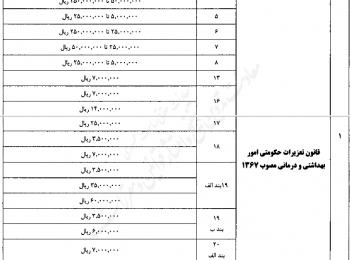 ۵۰,۰۰۰,۰۰۰ تا ۲۵۰,۰۰۰,۰۰۰ ریال
۵ ۵,۰۰۰,۰۰۰ تا ۲۵,۰۰۰,۰۰۰ ریال
۶ ۲۵,۰۰۰,۰۰۰ تا ۲۵۰,۰۰۰,۰۰۰ ریال
۷ ۲۵,۰۰۰,۰۰۰ تا ۵۰,۰۰۰,۰۰۰ ریال
۸ ۵,۰۰۰,۰۰۰ تا ۲۵,۰۰۰,۰۰۰ ریال
۱۳ ۷,۰۰۰,۰۰۰ ریال
۱۶ ۷,۰۰۰,۰۰۰ ریال
۱۴,۰۰۰,۰۰۰ ریال
۱۷ ۲۵,۰۰۰,۰۰۰ ریال
۱
قانون تعزیرات حکومتی امور
بهداشتی و درمانی مصوب ۱۳۶۷
۱۸ ۳,۵۰۰,۰۰۰ ریال
۷,۰۰۰,۰۰۰ ریال
۱۹بند الف ۳,۵۰۰,۰۰۰ ریال
۳۵,۰۰۰,۰۰۰ ریال
۶۰,۰۰۰,۰۰۰ ریال
۱۹
بند ب
۳,۵۰۰,۰۰۰ ریال
۶,۰۰۰,۰۰۰ ریال
۲۰
بند الف
۷,۰۰۰,۰۰۰ ریال